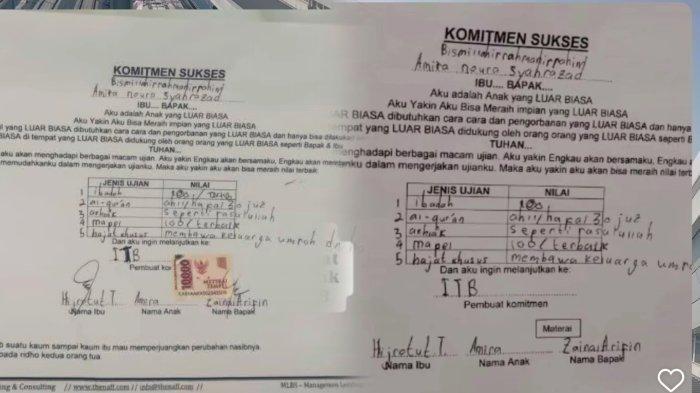 KOMITMEN SUKSES
Bismillahirrahmanirrohim
Amira noura Syahrazad
IBU.... BAPAK....
Aku adalah Anak yang LUAR BIASA
Aku Yakin Aku Bisa Meraih impian yang LUAR BIASA
il yang LUAR BIASA dibutuhkan cara cara dan pengorbanan yang LUAR BIASA dan hanya bisa dilakukan
di tempat yang LUAR BIASA didukung oleh orang orang yang LUAR BIASA seperti Bapak & Ibu
TUHAN...
aku akan menghadapi berbagai macam ujian. Aku yakin Engkau akan bersamaku, Engkau akan
memudahkanku dalam mengerjakan ujianku. Maka aku yakin aku akan bisa meraih nilai terbaik:
JENIS UJIAN NILAI
1 ibadah 100
2 al-qur'an ahli/hapal 30 juz
3 akhlak seperti rasulullah
4 mapel 100/terbaik
5 hajat khusus membawa keluarga umroh
Dan aku ingin melanjutkan ke:
ITB
Pembuat komitmen
10000
METERAI
TEMPEL
Hijrotut T. Amira Zainal Aripin
Nama Ibu Nama Anak Nama Bapak
b suatu kaum sampai kaum itu mau memperjuangkan perubahan nasibnya.
pada ridho kedua orang tua.
ng & Consulting // www.thenaff.com // info@thenaff.com
KOMITMEN SUKSES
Bismillahirrahmanirrohim
Amira noura Syahrazad
IBU.... BAPAK....
Aku adalah Anak yang LUAR BIASA
Aku Yakin Aku Bisa Meraih impian yang LUAR BIASA
LUAR BIASA dibutuhkan cara cara dan pengorbanan yang LUAR BIASA dan hanya
tempat yang LUAR BIASA didukung oleh orang orang yang LUAR BIASA seperti B
TUHAN...
menghadapi berbagai macam ujian. Aku yakin Engkau akan bersamaku, E
ku dalam mengerjakan ujianku. Maka aku yakin aku akan bisa meraih nilai terb
JENIS UJIAN NILAI
1 ibadah 100
2 al-qur'an ahli/hapal 30 juz
3 akhlak seperti rasulullah
4 mapel 100/terbaik
5 hajat khusus membawa keluarga umro
Dan aku ingin melanjutkan ke:
ITB
Pembuat komitmen
Materai
Hijrotut T. Amira Zainal Aripin
Nama Ibu Nama Anak Nama Bapak